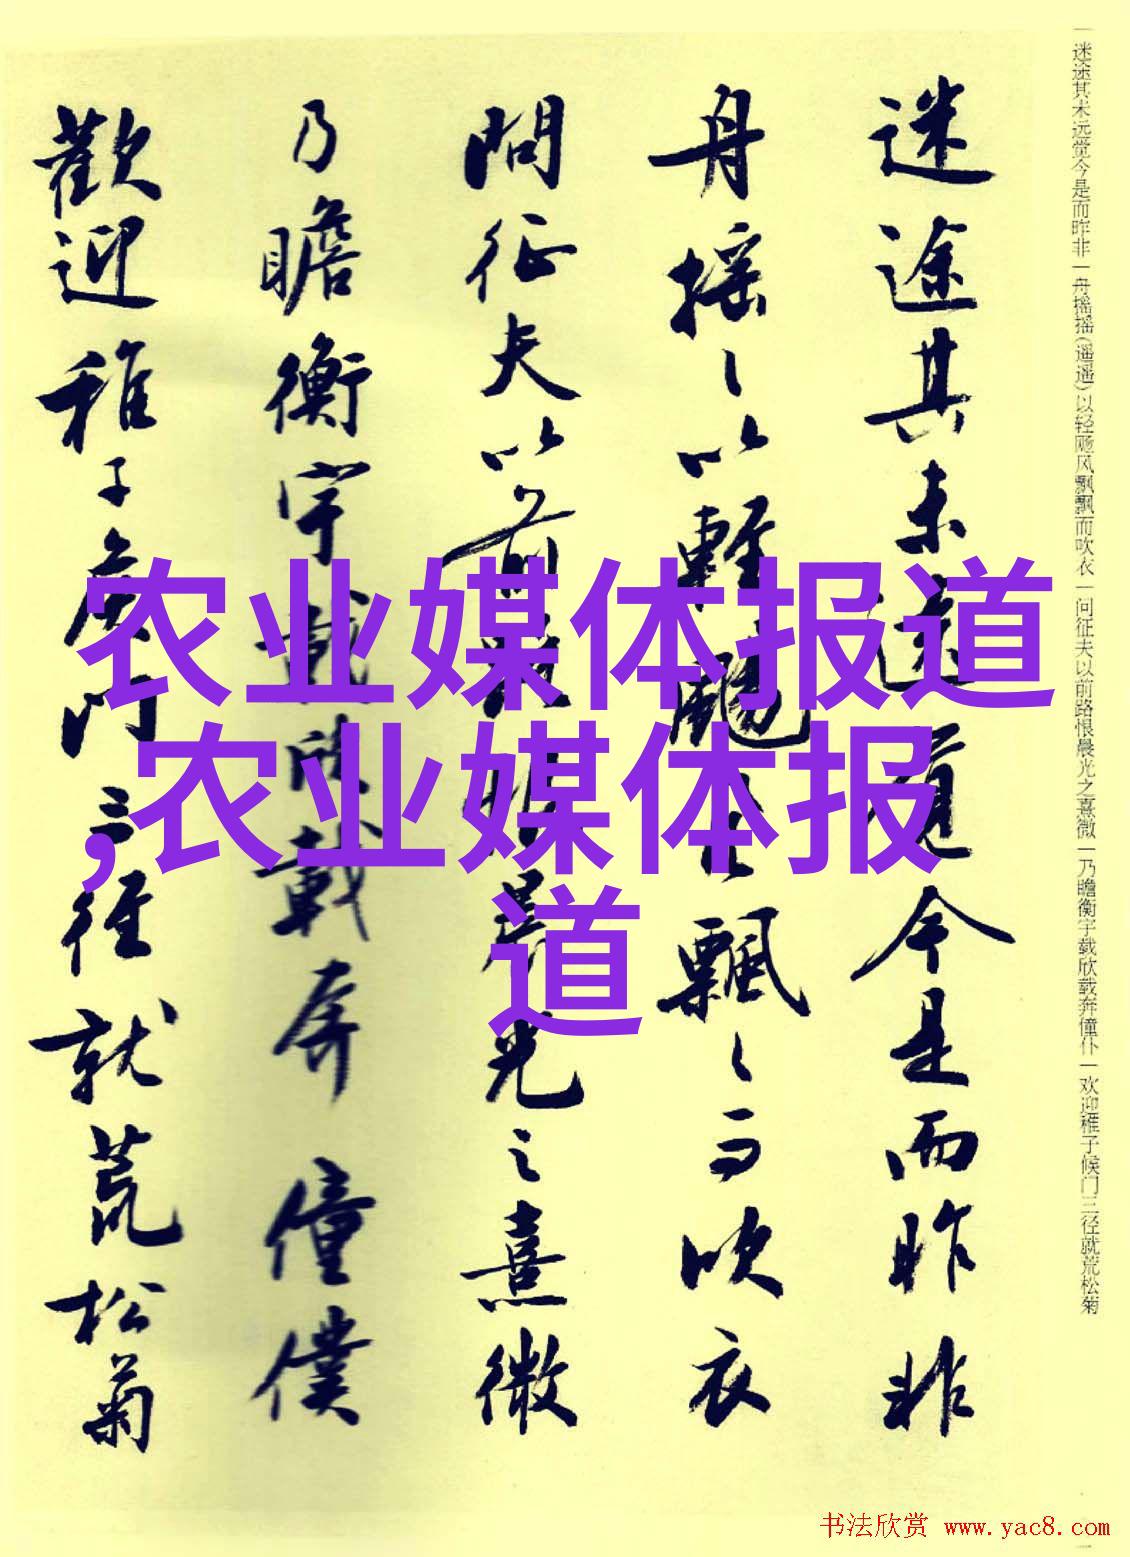 一迷途其未远觉今是而昨非一舟摇摇(遥遥)以轻飏风飘飘而吹衣一问征夫以前路恨晨光之熹微一乃瞻衡宇载欣载奔僮仆一欢迎稚子候门三径就荒松菊
迷途其未遠今是而昨非
舟摇〻以輕颺飄〻而吹衣
問征夫以前路恨晨光之熹微
乃瞻衡宇載欣載奔僮僕
歡迎稚子候門三徑就荒松菊
农业媒体报道
,农业媒体报
道
书法欣赏 www.yac8.com